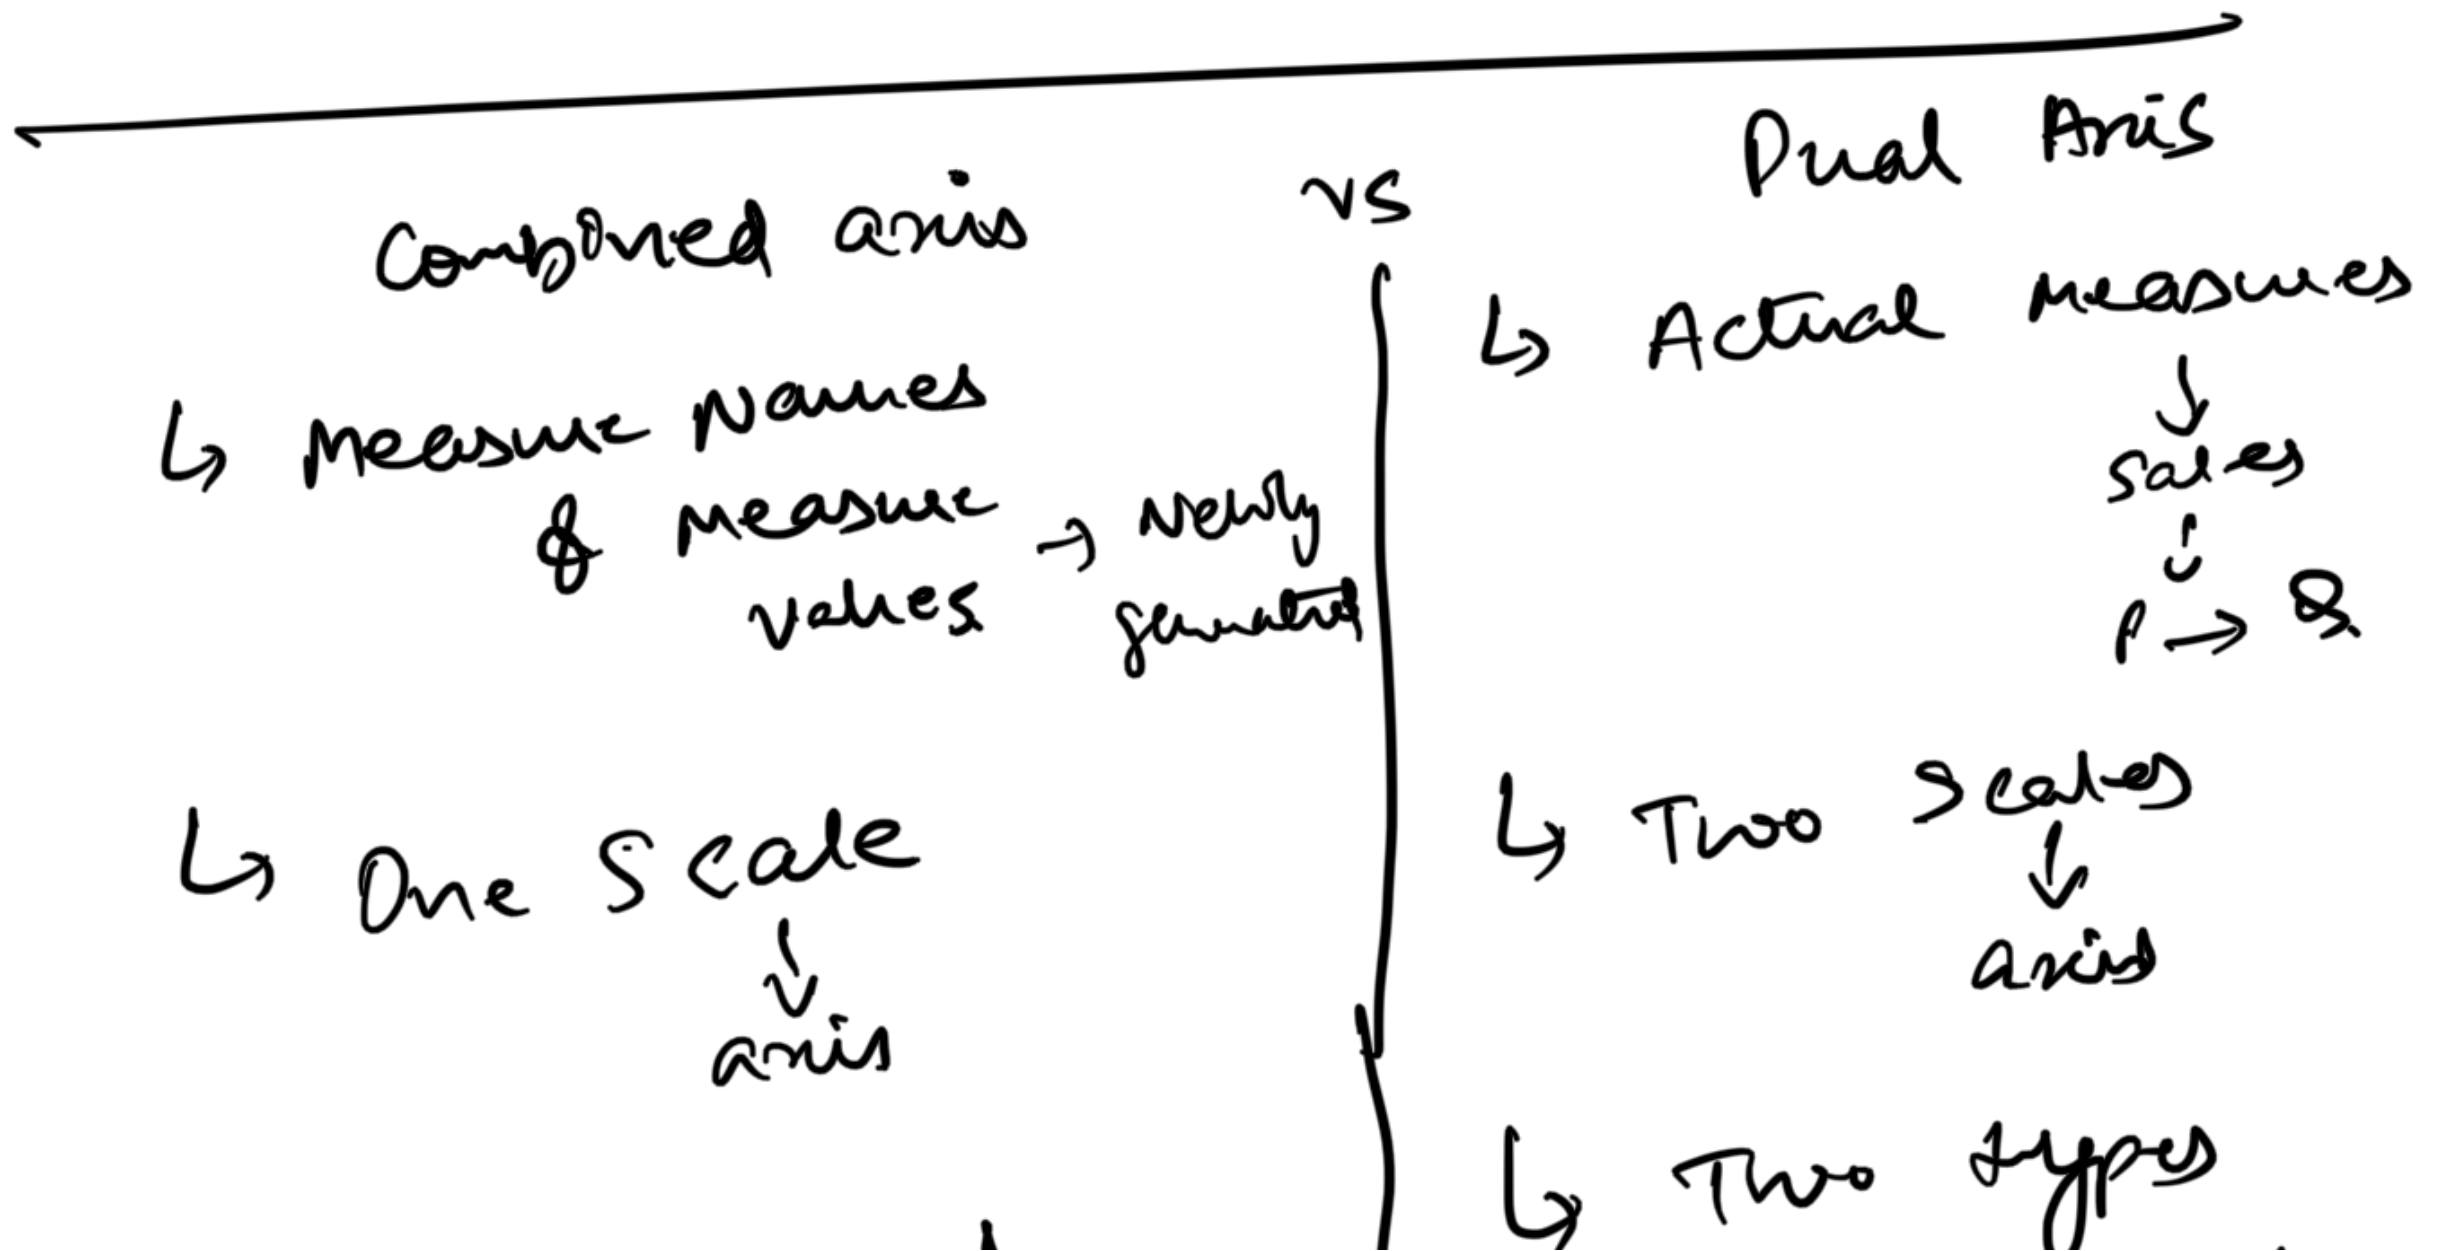 Combined axis vs Dual Axis
↳ Measure Names
& Measure values → Newly generated
↳ One Scale
↓
axis
↳ Actual measures
↓
sales
P → Q
↳ Two scales
↓
axis
↳ Two types